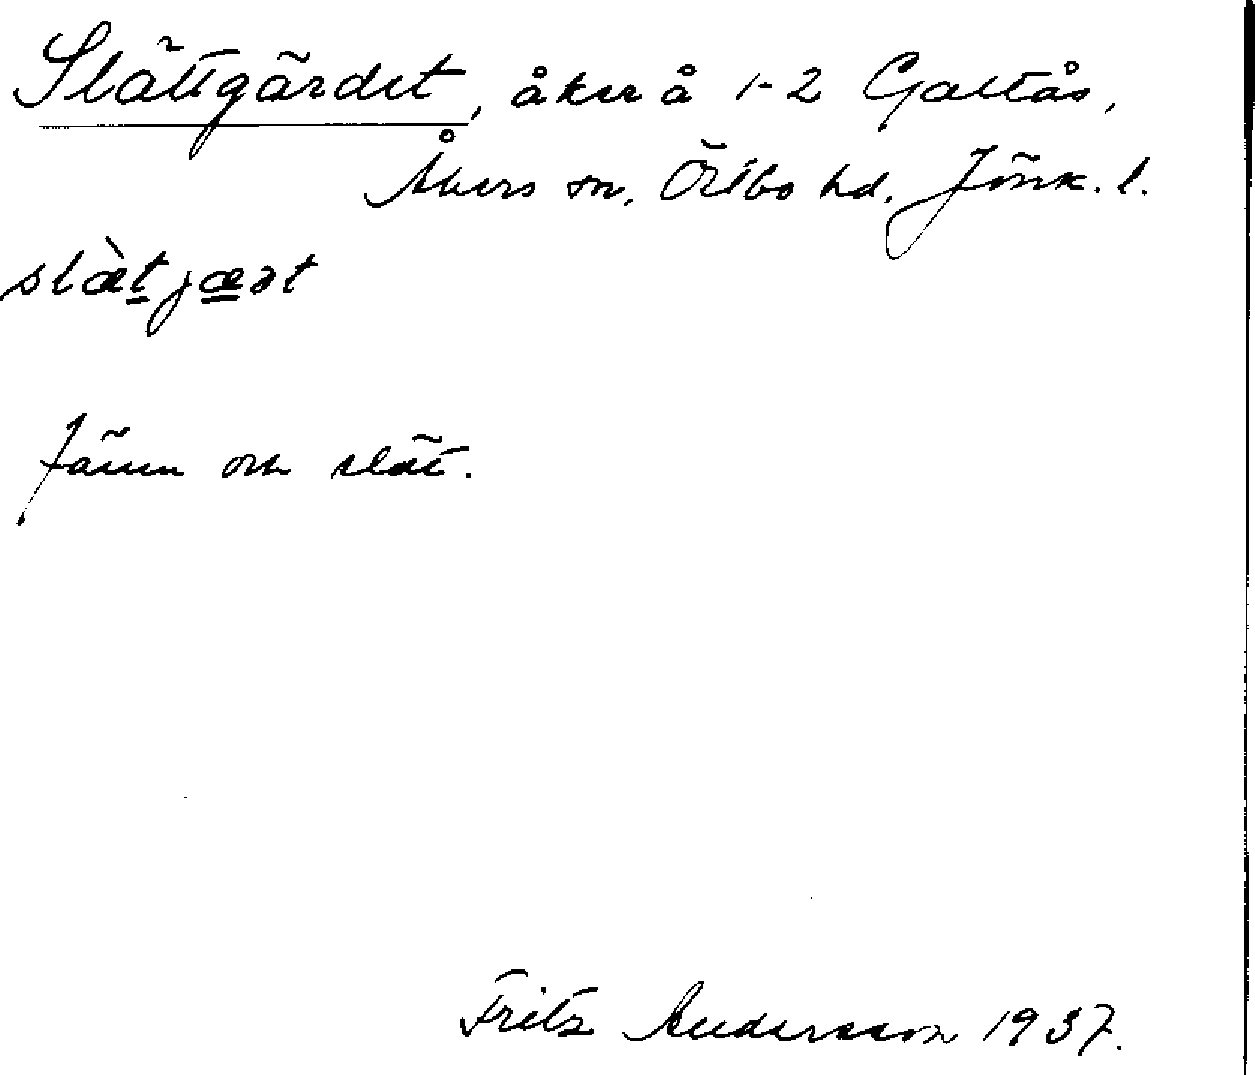 Slättgärdet, åker å 1-2 Galtås,
Åkers sn, Östbo hd, Jönk. l.
slæ̀t̲jæ̲ət
Jämn och slät.
Fritz Andersson 1937.